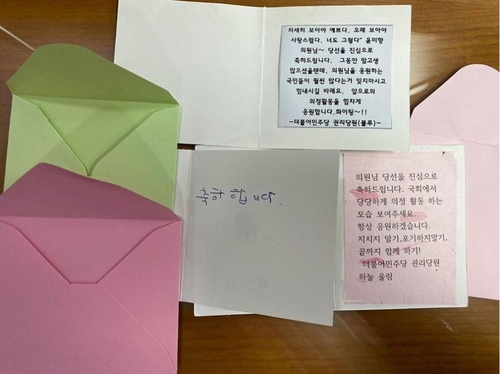 자세히 보아야 예쁘다, 오래 보아야
사랑스럽다, 너도 그렇다" 윤미향
의원님~ 당선을 진심으로
축하드립니다. 그동안 맘고생
많으셨을텐데, 의원님을 응원하는
국민들이 훨씬 많다는거 잊지마시고
힘내시길 바래요. 앞으로의
의정활동을 힘차게
응원합니다.화이팅~!!
-더불어민주당 권리당원(블루)-
축하 합니다.
의원님 당선을 진심으로
축하드립니다. 국회에서
당당하게 의정 활동 하는
모습 보여주세요.
항상 응원하겠습니다.
지치지 말기,포기하지말기,
끝까지 함께 하기!
더불어민주당 권리당원
하늘 올림